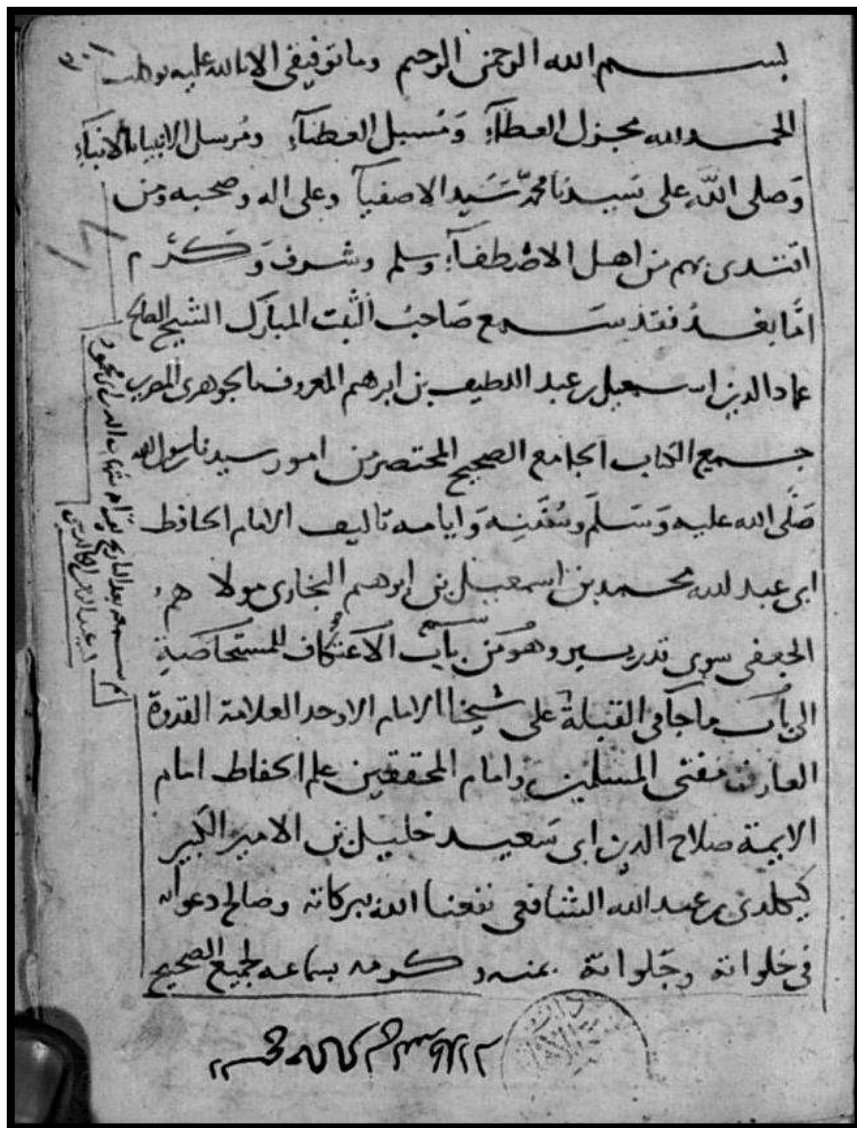 بسم الله الرحمن الرحيم وما توفيقي الا بالله عليه توكلت
الحمد لله مجزل العطاء ومسبل الغطاء ومرسل الانبياء بالانباء
وصلى الله على سيدنا محمد سيد الاصفيا وعلى اله وصحبه ومن
اقتدى بهم من اهل الاصطفاء وسلم وشرف وكرم
اما بعد فقد سمع صاحب الثبت المبارك الشيخ الصالح
عماد الدين اسمعيل بن عبد اللطيف بن ابرهيم المعروف بالجوهري المصري
جميع الكتاب الجامع الصحيح المختصر من امور سيدنا رسول الله
صلى الله عليه وسلم وسننه وايامه تاليف الامام الحافظ
ابي عبد الله محمد بن اسمعيل بن ابرهيم البخاري مولاهم
الجعفي سوى قدر يسير وهو من باب الاعتكاف للمستحاضة
الى باب ما جآ في القبلة على شيخنا الامام الاوحد العلامة القدوة
العارف مفتى المسلمين وامام المحققين علم الحفاظ امام
الايمة صلاح الدين ابي سعيد خليل بن الامير الكبير
كيكلدي بن عبد الله الشافعي نفعنا الله ببركاته وصالح دعواته
في خلواته وجلواته بمنه وكرمه بسماعه لجميع الصحيح